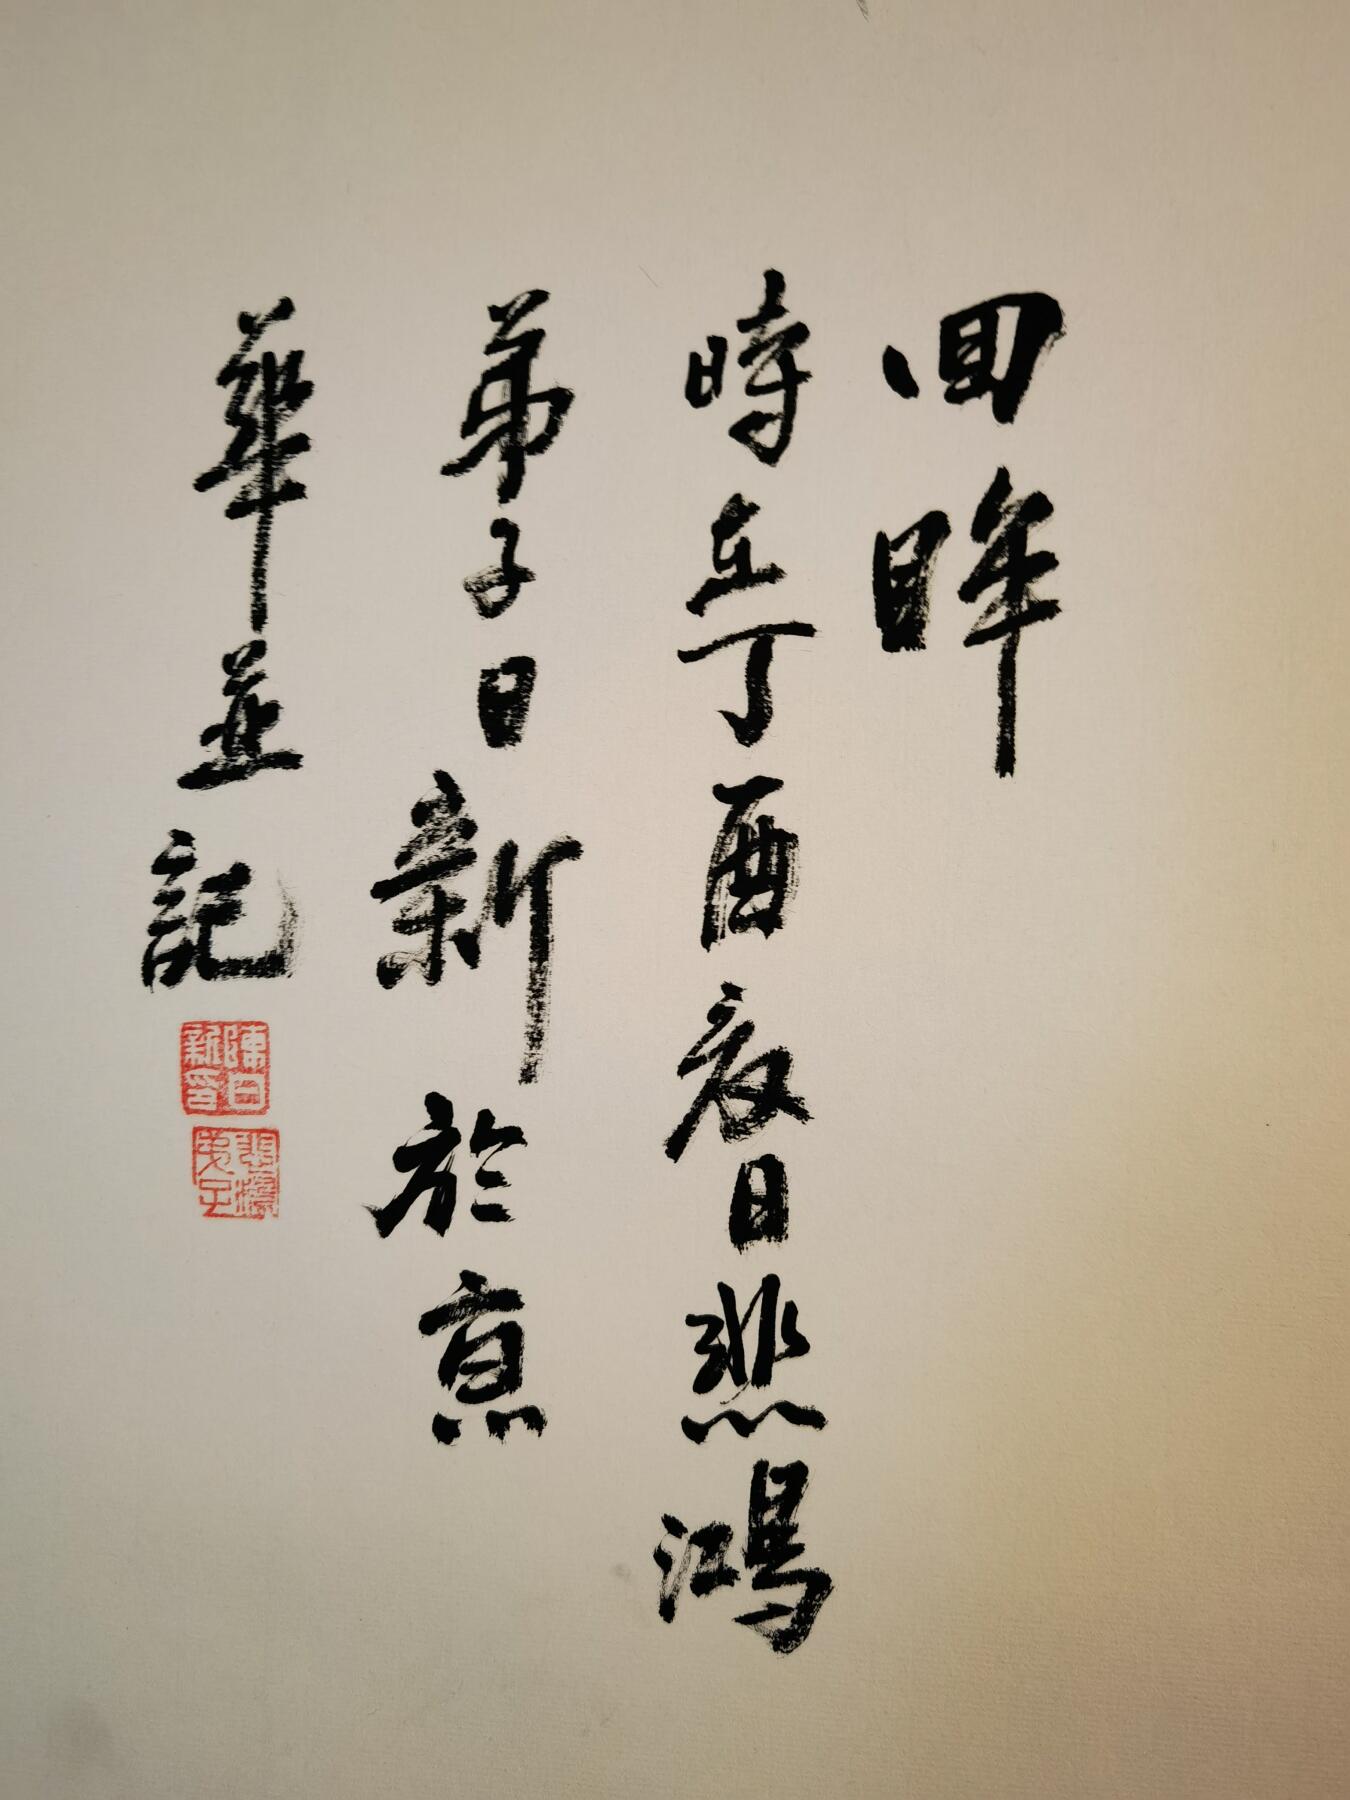 回眸
時在丁酉夜日悲鴻
弟子日新於京
華並記
陳日新印
悲鴻弟子